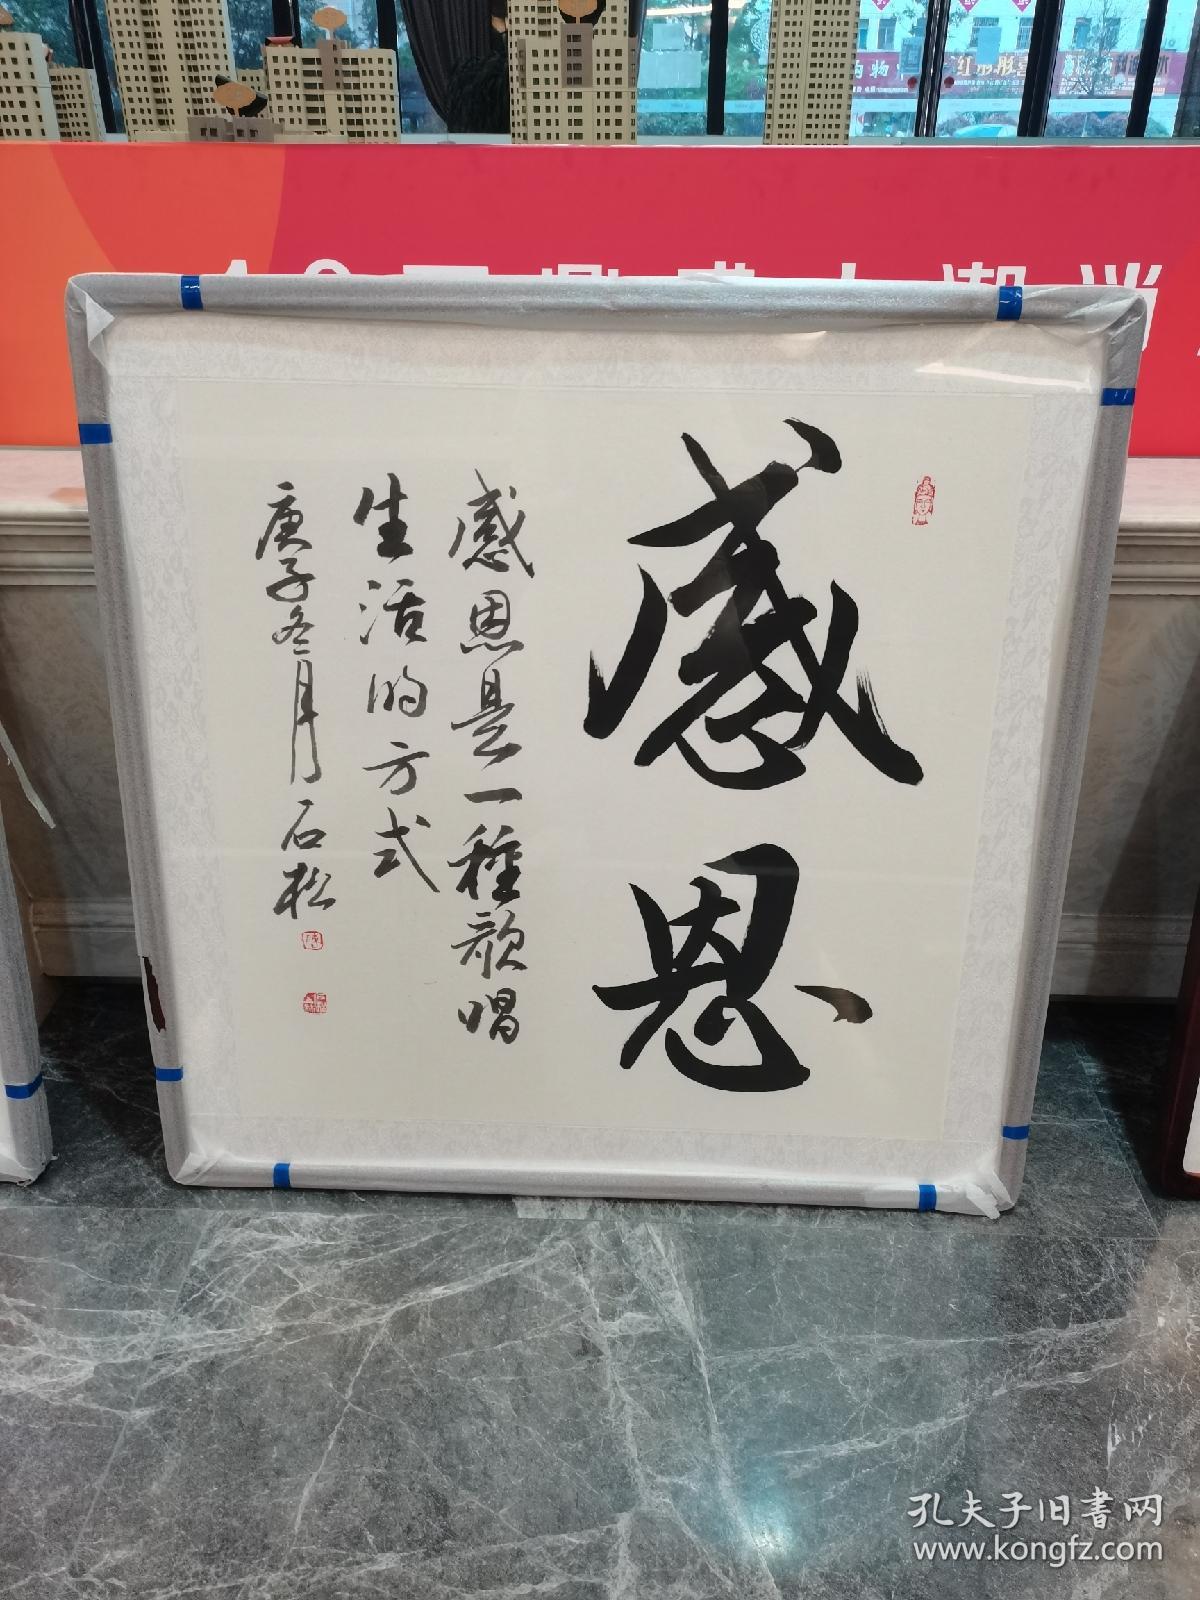 感恩
感恩是一種歌唱
生活的方式
庚子冬月石松
购物
孔夫子旧書网
www.kongfz.com